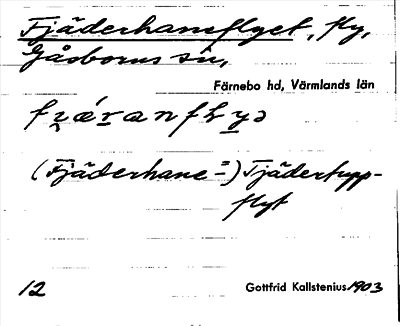 Fjäderhansflyet, fly,
Gåsborns sn,
Färnebo hd, Värmlands län
(Fjäderhane =) Tjädertupp-
flyt
12 Gottfrid Kallstenius 1903